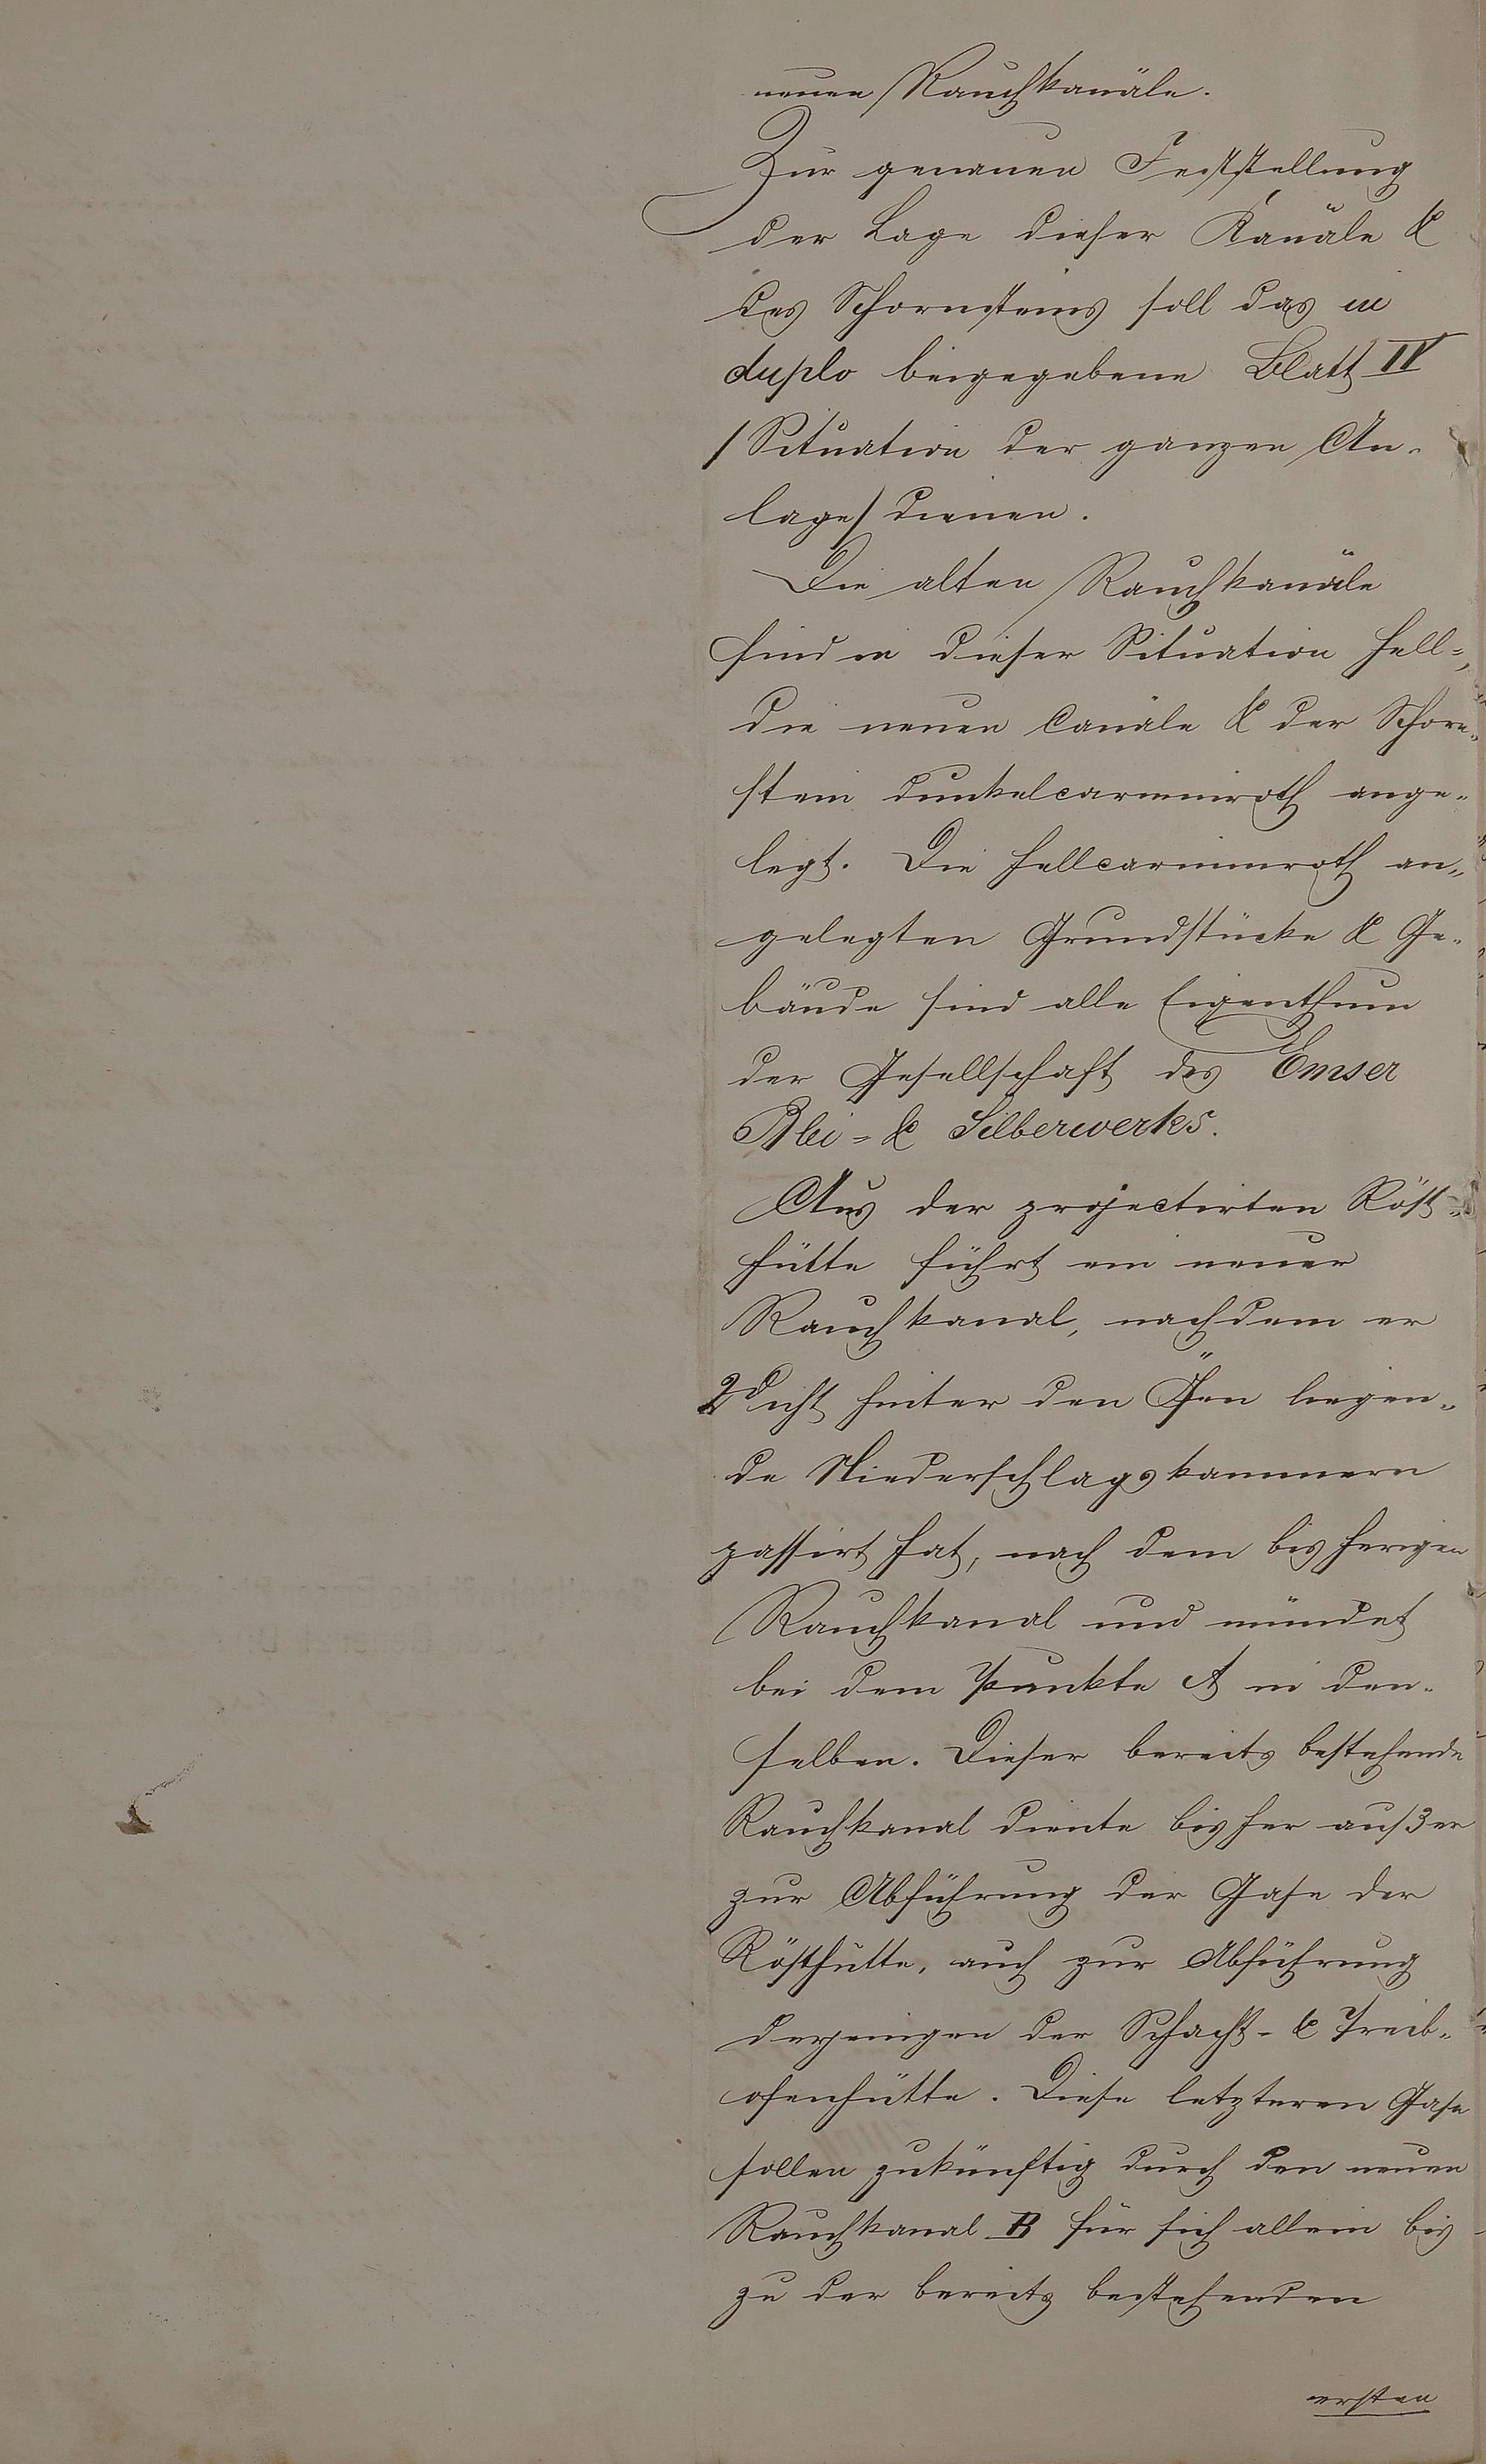 neuen Rauchkanäle.
Zur genauen Feststellung
der Lage dieser Kanäle &
des Schornsteins soll das in
duplo beigegebene Blatt IV
/Situation der ganzen An-
lage/ dienen.
Die alten Rauchkanäle
sind in dieser Situation hell-,
die neuen Canäle & der Schorn-
stein dunkelcarminroth ange-
legt. Die hellcarminroth an-
gelegten Grundstücke & Ge-
bäude sind alle Eigenthum
der Gesellschaft des Emser
Blei- & Silberwerks.
Aus der projectirten Röst-
hütte führt ein neuer
Rauchkanal, nachdem er
2 dicht hinter den Öfen liegen-
de Niederschlagskammern
passirt hat, nach dem bisherigen
Rauchkanal und mündet
bei dem Punkte A in den-
selben. Dieser bereits bestehende
Rauchkanal diente bisher außer
zur Abführung der Gase der
Rösthütte, auch zur Abführung
derjenigen der Schacht- & Treib-
ofenhütte. Diese letzteren Gase
sollen zukünftig durch den neuen
Rauchkanal B für sich allein bis
zu der bereits bestehenden
ersten